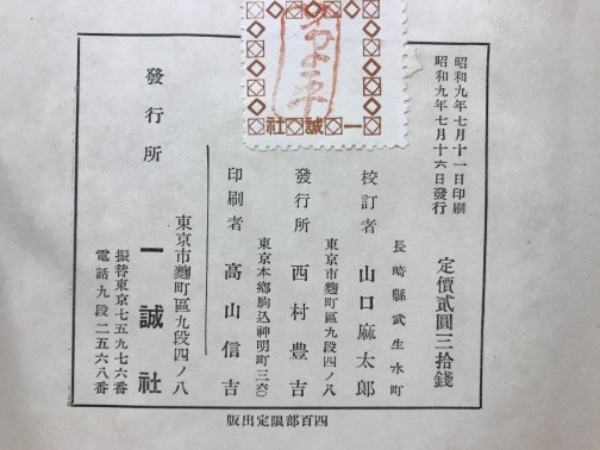 昭和九年七月十一日印刷
昭和九年七月十六日發行
定價貳圓三拾錢
長崎縣武生水町
校訂者 山口麻太郎
東京市麴町區九段四ノ八
發行所 西村豊吉
東京本鄕駒込神明町三六〇
印刷者 高山信吉
東京市麴町區九段四ノ八
發行所 一誠社
振替東京七五九七六番
電話九段二五六八番
社誠一
版出定限部百四